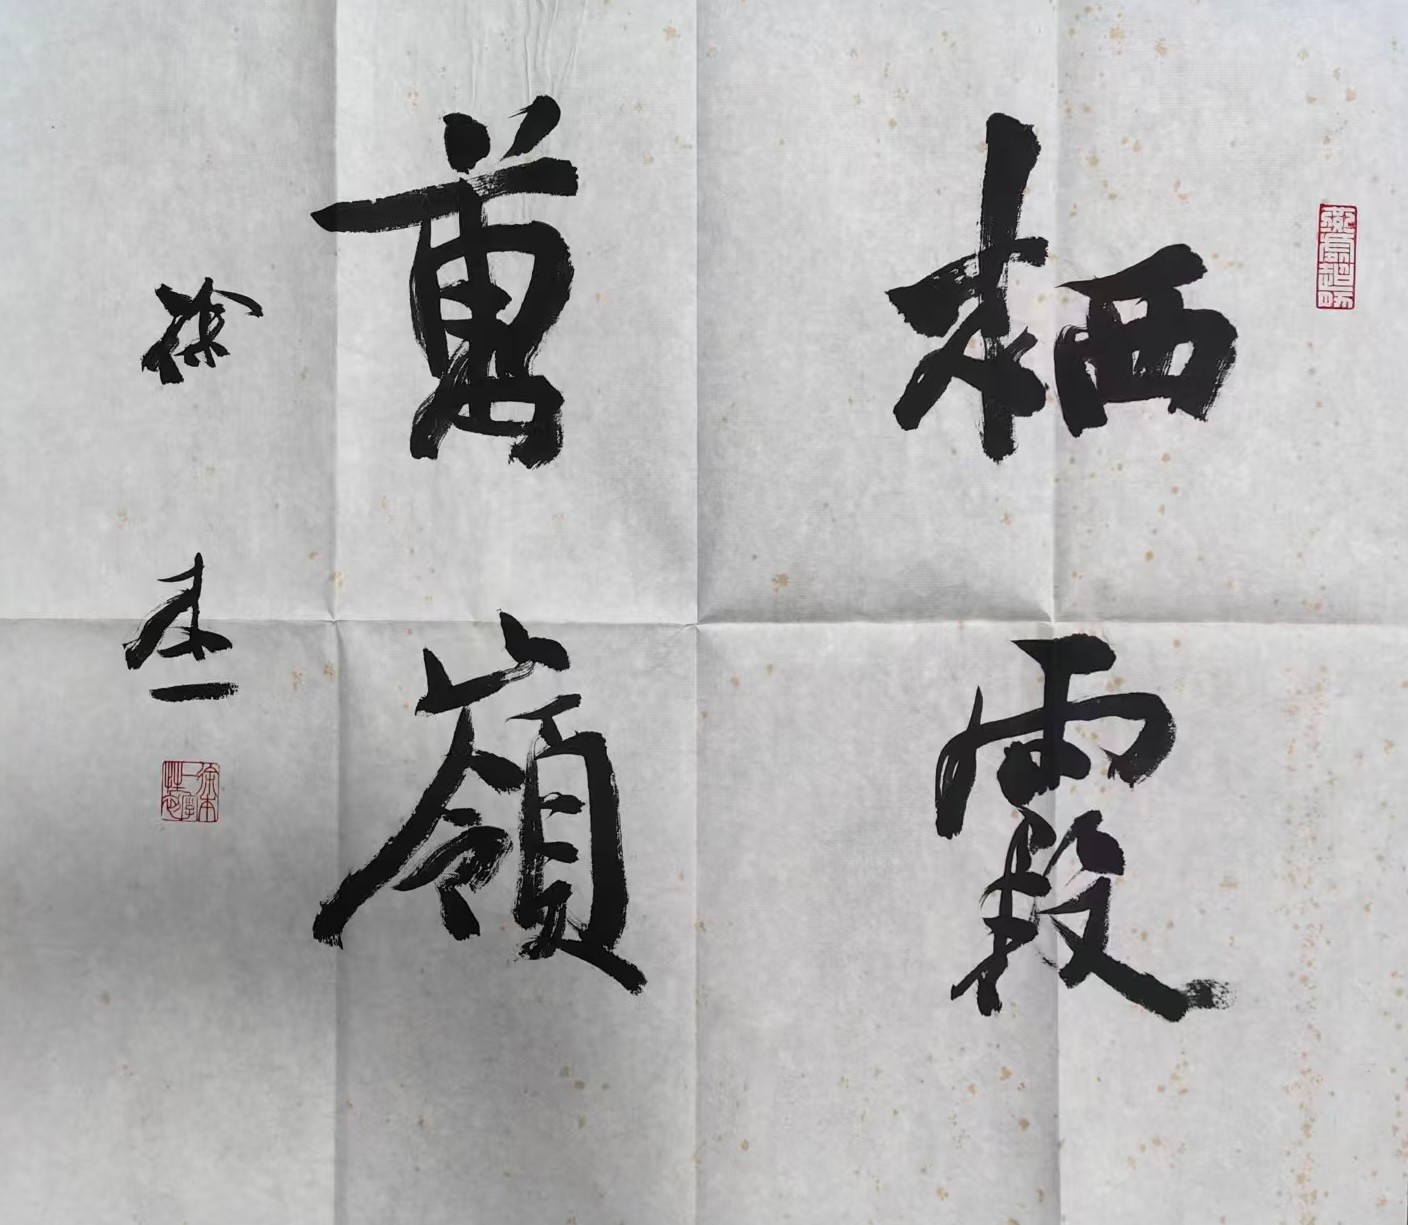 栖霞
萬嶺
徐本一